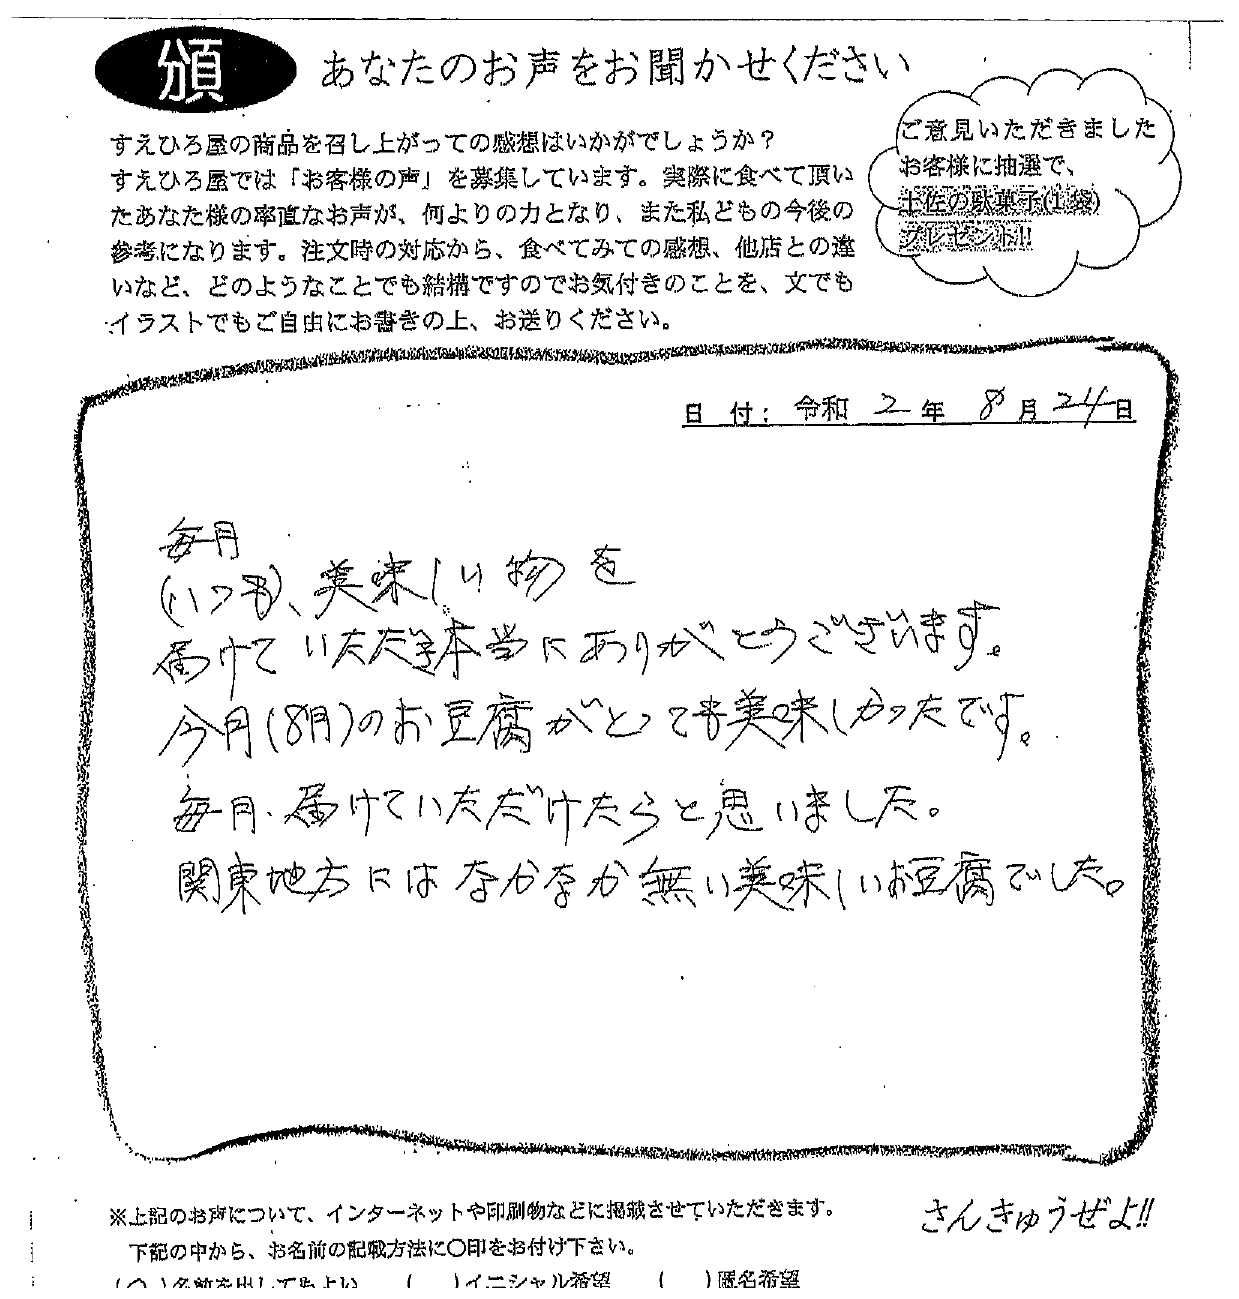 頒 あなたのお声をお聞かせください
すえひろ屋の商品を召し上がっての感想はいかがでしょうか？
すえひろ屋では「お客様の声」を募集しています。実際に食べて頂い
たあなた様の率直なお声が、何よりの力となり、また私どもの今後の
参考になります。注文時の対応から、食べてみての感想、他店との違
いなど、どのようなことでも結構ですのでお気付きのことを、文でも
イラストでもご自由にお書きの上、お送りください。
ご意見いただきました
お客様に抽選で、
土佐の駄菓子(1袋)
プレゼント!!
日 付： 令和 2 年 8 月 24 日
毎月
(いつも)、美味しい物を
届けていただき本当にありがとうございます。
今月(8月)のお豆腐がとっても美味しかったです。
毎月、届けていただけたらと思いました。
関東地方にはなかなか無い美味しいお豆腐でした。
※上記のお声について、インターネットや印刷物などに掲載させていただきます。
下記の中から、お名前の記載方法に〇印をお付け下さい。
(〇)名前を出してもよい ( )イニシャル希望 ( )匿名希望
さんきゅうぜよ!!